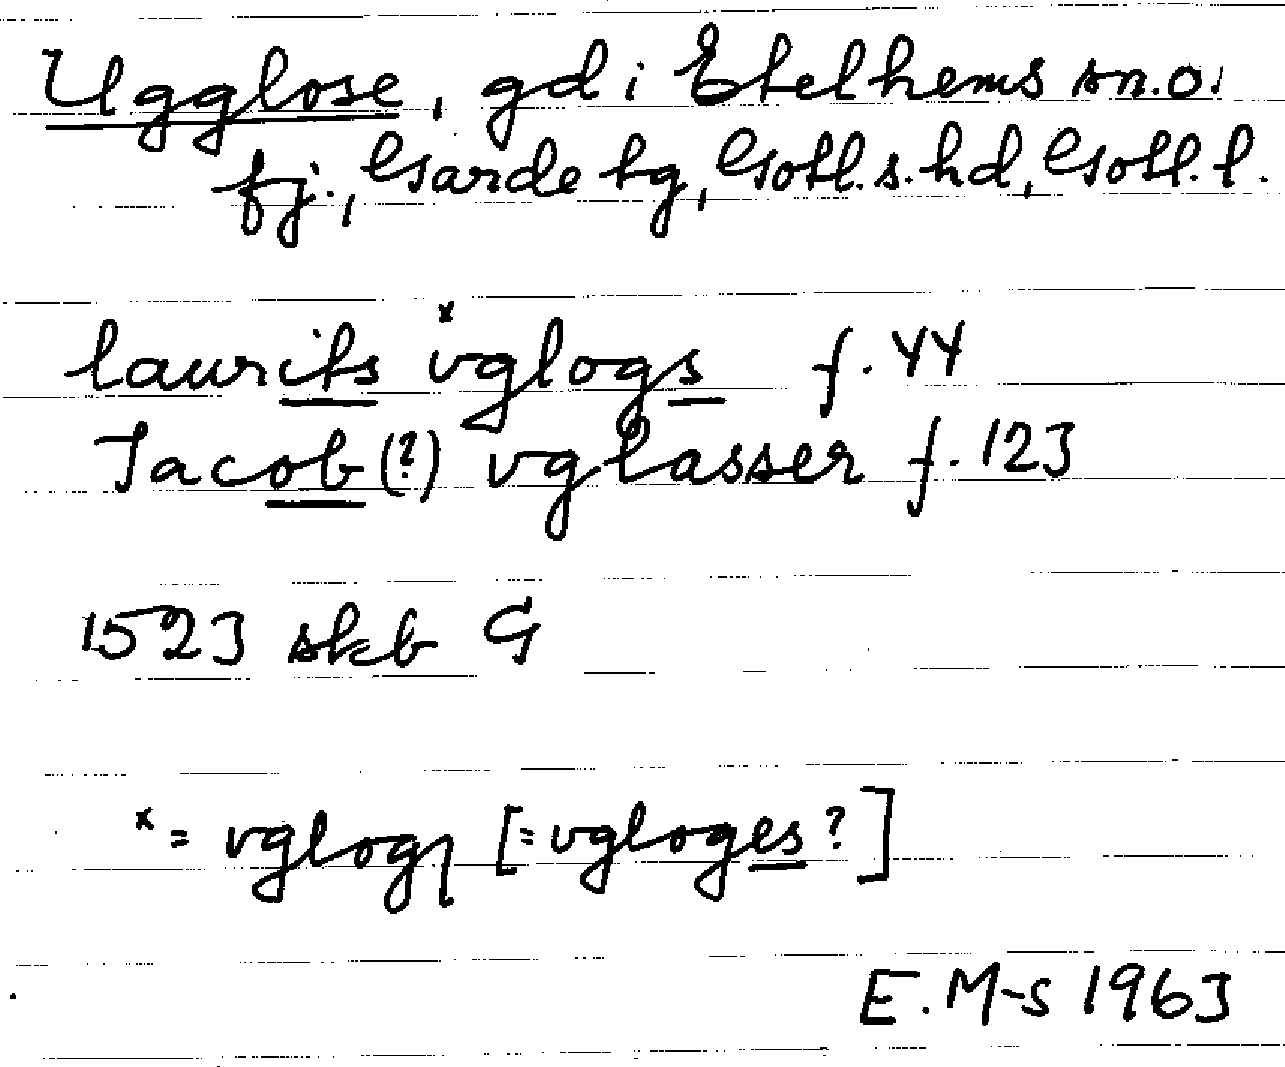 Ugglose, gd i Etelhems sn. o.
fj., Garde tg, Gotl. s. hd, Gotl. l.
laurits ˣvglogs f. 44
Jacob (?) vglasser f. 123
1523 skb G
ˣ = vglogꝭ [= vgloges ?]
E. M-s 1963